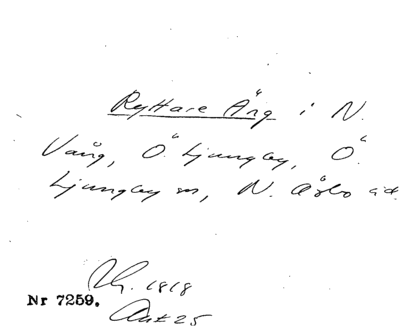 Ryttare Äng i N.
Vång, Ö. Ljungby, Ö.
Ljungby sn, N. Åsbo hd.
1818
Nr 7259.
Akt 25